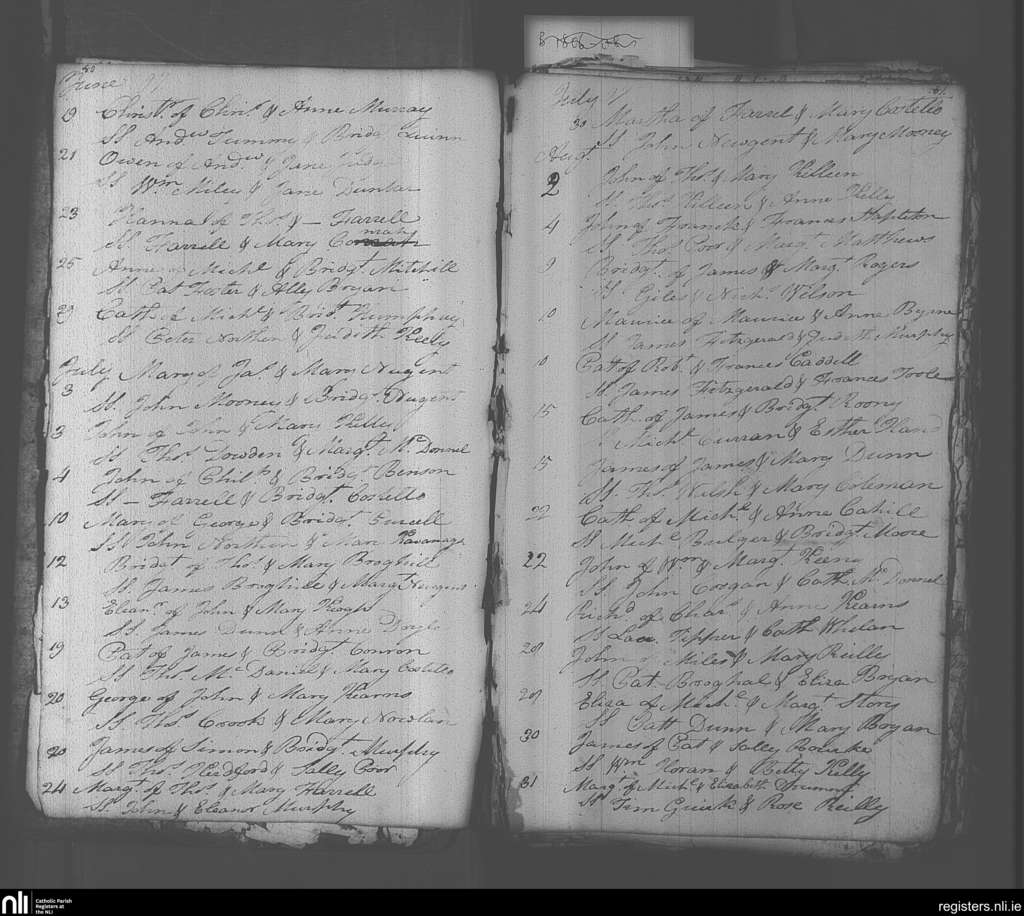 B 1806-08
50
June
19 Christr. of Chrisr. & Anne Murray
SS Andw. Tummy & Bridgt. Quinn
21 Owen of Andw. & Jane
SS Wm. Miley & Jane Dunbar
23 Hanna of Thos. & — Farrell
SS. Farrell & Mary
25 Anne of Michl. & Bridgt. Mitchill
SS Pat Foster & Alley Bryan
29 Cath. of Michl. & Bridt. Humphrey
SS Peter Northen & Judith Keely
July Mary of Jas. & Mary Nugent
3 SS. John Mooney & Bridgt. Nugent
3 John of John & Mary Kelly
SS Thos. Dowden & Margt. Mc. Donnel
4 John of Philp. & Bridgt. Benson
SS — Farrell & Bridgt. Costello
10 Mary of George & Bridgt. Purcell
SS. John Northen & Mary Kavanagh
12 Bridgt of Thos. & Mary Broghill
SS. James Broghill & Margt Nugent
13 Eleanr. of John & Mary Keogh
SS. James Dunn & Anne Doyle
19 Pat of James & Bridgt. Conron
SS Thos. Mc. Daniel & Mary Costello
20 George of John & Mary Kearns
SS. Thos. Crooks & Mary Nowlan
20 James of Simon & Bridgt. Murphy
SS Thos. Hedford & Sally Poor
24 Margt. of Thos. & Mary Farrell
SS. John & Eleanor Murphy
51
July
30 Martha of Farrel & Mary Costello
SS John Newgent & Mary Mooney
Augt.
2 John of Thos. & Mary Killeen
SS Thos. Killeen & Anne Kelly
4 John of Francis & Frances Stapleton
SS Thos. Poor & Margt. Matthews
9 Bridgt. of James & Margt. Rogers
SS. Giles & Nichs. Wilson
10 Maurice of Maurice & Anne Byrne
SS James Fitzgerald & Judith Murphy
10 Pat of Robt. & Frances Caddell
SS James Fitzgerald & Frances Toole
15 Cath. of James & Bridgt. Roony
Michl. Curran & Esther Hand
15 James of James & Mary Dunn
SS. Thos. Welsh & Mary Coleman
22 Cath of Michl. & Anne Cahill
SS Michl. Badger & Bridgt. Moore
22 John of Wm. & Margt. Keena
SS. John Coogan & Cath Mc. Donnel
24 Richd. of Chars. & Anne Kearns
SS Lau. Tipper & Cath Whelan
28 John of Miles & Mary Reilly
SS Pat Broghal & Eliza Bryan
29 Eliza of Michl. & Margt. Story
SS Patt Dunn & Mary Bryan
30 James of Pat & Sally Rourke
SS Wm. Horan & Betty Kelly
31 Margt. of Michl. & Elizabeth
SS. Tim Quirk & Rose Reilly
nli
Catholic Parish
Registers at
the NLI
registers.nli.ie